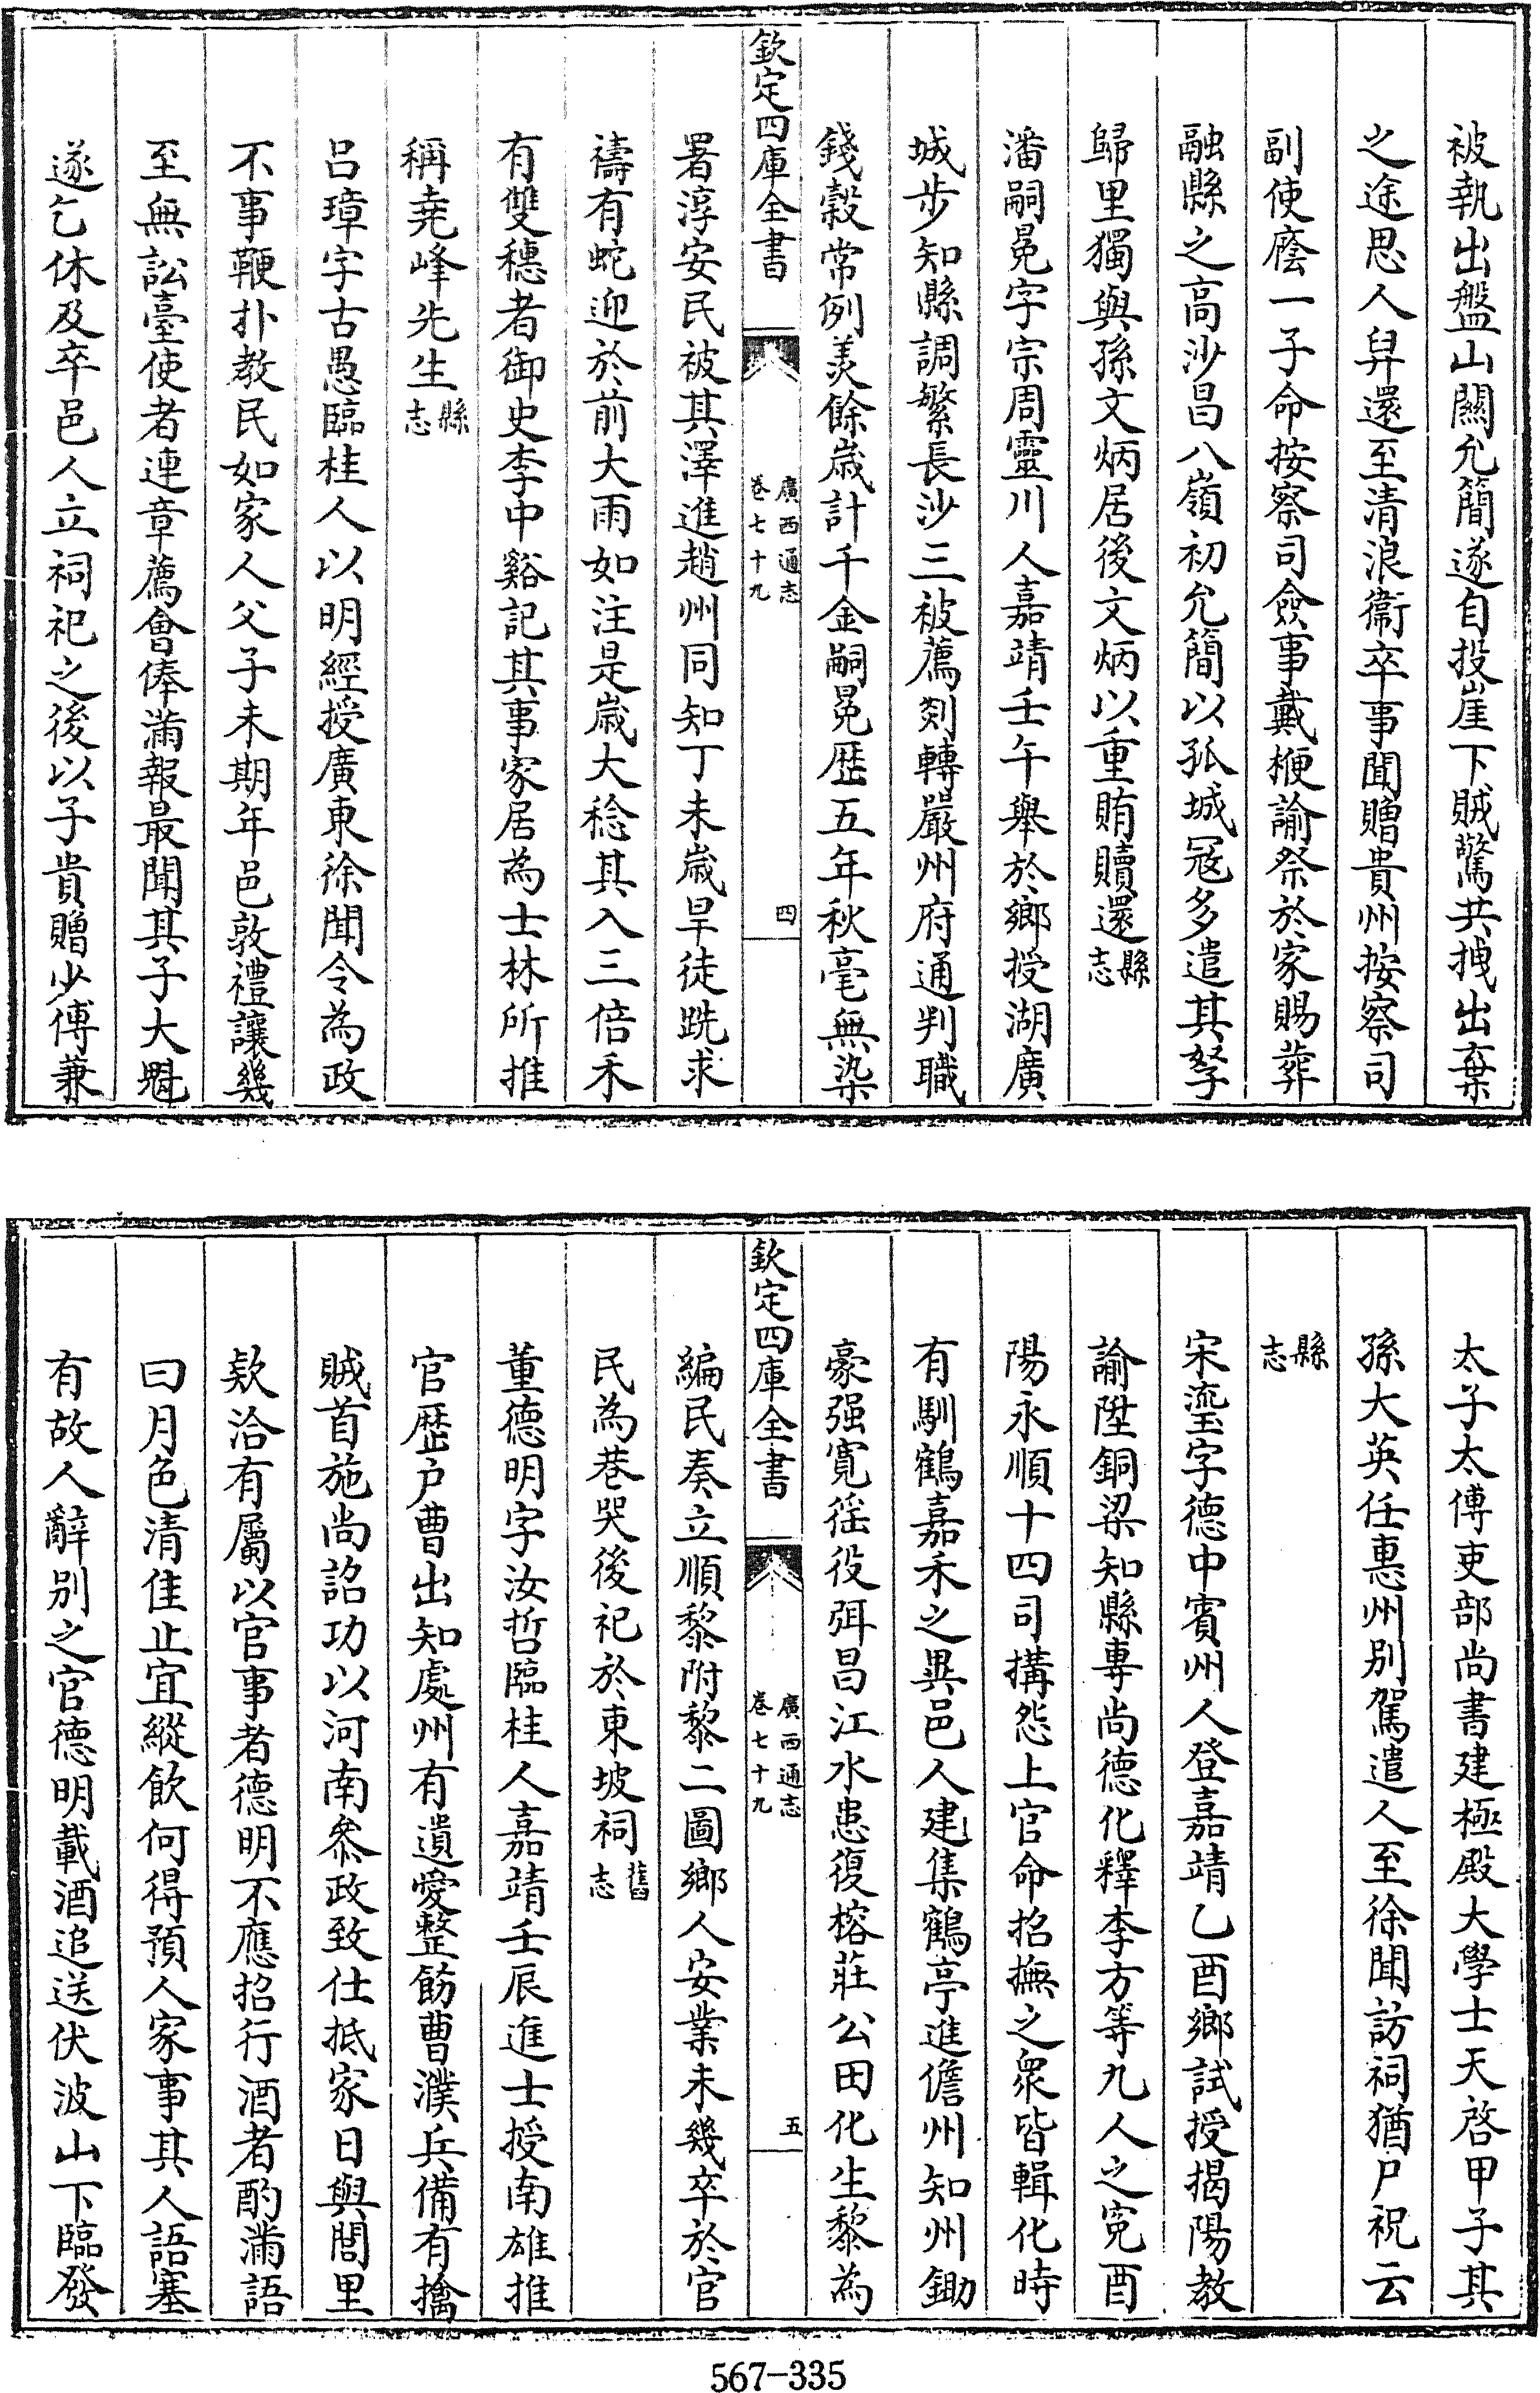 被執出盤山關允簡遂自投崖下賊驚共拽出棄
之途思人舁還至清浪衞卒事聞贈貴州按察司
副使廕一子命按察司僉事戴楩諭祭於家賜葬
融縣之高沙昌八嶺初允簡以孤城冦多遣其孥
歸里獨與孫文炳居後文炳以重賄贖還縣志
潘嗣冕字宗周靈川人嘉靖壬午舉於鄉授湖廣
城步知縣調繁長沙三被薦剡轉嚴州府通判職
錢穀常例羨餘歲計千金嗣冕歴五年秋毫無染
欽定四庫全書
廣西通志
卷七十九
四
署淳安民被其澤進趙州同知丁未歲旱徒跣求
禱有蛇迎於前大雨如注是歲大稔其入三倍禾
有雙穗者御史李中谿記其事家居為士林所推
稱堯峰先生縣志
呂璋字古愚臨桂人以明經授廣東徐聞令為政
不事鞭扑教民如家人父子未期年邑敦禮讓幾
至無訟臺使者連章薦會俸滿報最聞其子大魁
遂乞休及卒邑人立祠祀之後以子貴贈少傅兼
太子太傅吏部尚書建極殿大學士天啓甲子其
孫大英任惠州別駕遣人至徐聞訪祠猶尸祝云
縣志
宋瑬字德中賓州人登嘉靖乙酉鄉試授揭陽教
諭陞銅梁知縣專尚德化釋李方等九人之寃酉
陽永順十四司搆怨上官命招撫之衆皆輯化時
有馴鶴嘉禾之異邑人建集鶴亭進儋州知州鋤
豪强寛徭役弭昌江水患復榕莊公田化生黎為
欽定四庫全書
廣西通志
卷七十九
五
編民奏立順黎附黎二圖鄉人安業未幾卒於官
民為巷哭後祀於東坡祠舊志
董德明字汝哲臨桂人嘉靖壬辰進士授南雄推
官歴户曹出知處州有遺愛整飭曹濮兵備有擒
賊首施尚詔功以河南叅政致仕抵家日與閭里
欵洽有屬以官事者德明不應招行酒者酌滿語
曰月色清佳止宜縱飲何得預人家事其人語塞
有故人辭別之官德明載酒追送伏波山下臨發
567-335